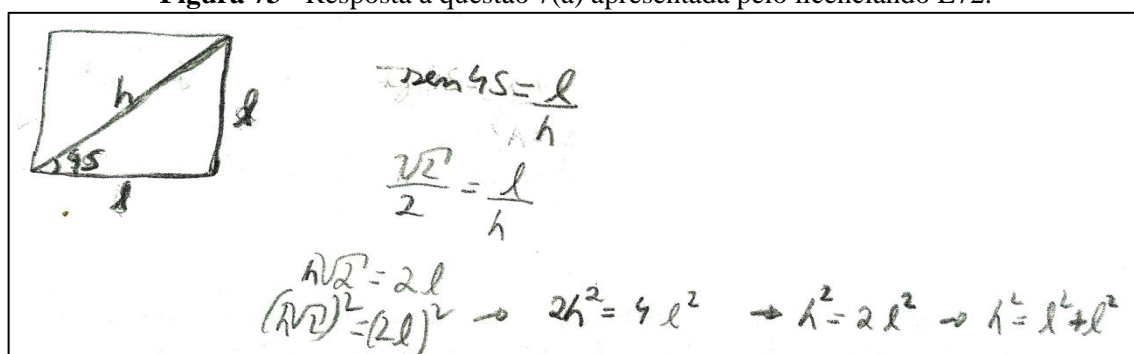 Figura - Resposta à questão 7(a) apresentada pelo licenciando
h
l
45
l
sen 45 = l/h
√2/2 = l/h
h√2 = 2l
(h√2)² = (2l)² → 2h² = 4l² → h² = 2l² → h² = l² + l²